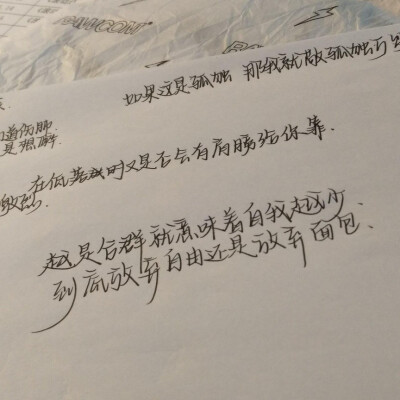 如果这是孤独 那我就敬孤独万
伤肺
是想解
在低落时又是否会有肩膀给你靠.
越是合群就意味着自我越少.
到底放弃自由还是放弃面包.